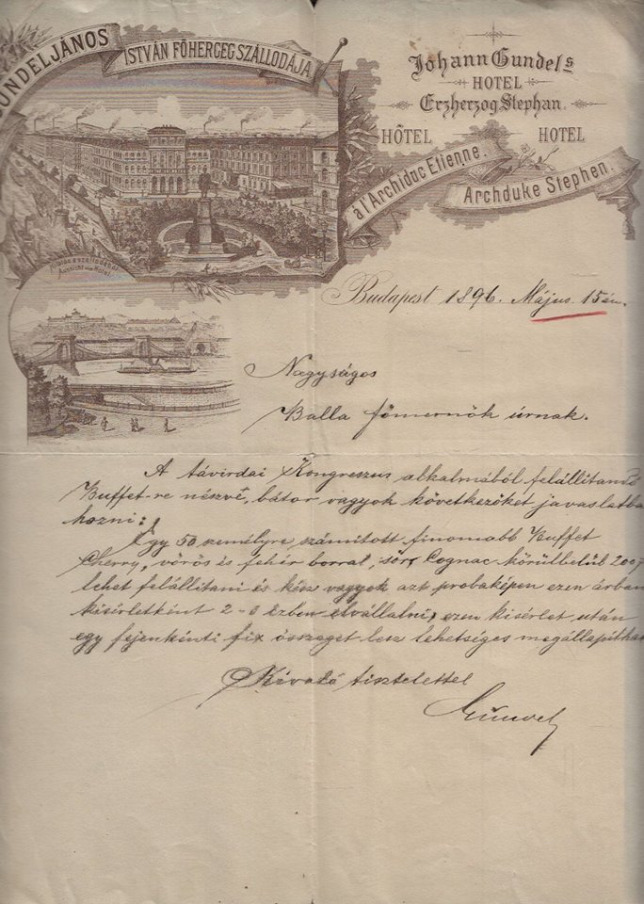 GUNDEL JÁNOS
ISTVÁN FŐHERCEG SZÁLLODÁJA
Johann Gundels
HOTEL
Erzherzog Stephan.
HÔTEL HOTEL
à l'Archiduc Etienne.
Archduke Stephen.
Budapest 1896. Május 15én.
Nagyságos
Balla főmérnök úrnak.
A távirdai Kongreszus alkalmából felállítandó
Buffet-re nészvé, bátor vagyok következőket javaslatba
hozni:
Egy 50 személyre számított finomabb Buffet
Cherry, vörös és fehér borral, sör, Cognac körülbelül
lehet felállítani és kész vagyok azt probaképen ezen árban
kisérletként 2-3 ízben elvállalni, ezen kisérlet után
egy fejenkénti fix összeget lesz lehetséges megállapítani
Kiváló tisztelettel